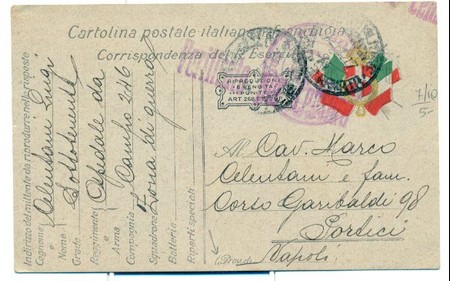 Cartolina postale italiana in franchigia
Corrispondenza del R. Esercito
RIPRODUZIONE
E VENDITA
PUNITE
ART
7/10
5-
Indirizzo del mittente da riprodurre nelle risposte
Cognome
Nome
Grado
Reggimento
Arma
Compagnia
Squadrone
Batteria
Riparti speciali
Luigi
Sottotenente
Ospedale da
Campo 246
Zona di guerra
Al Cav. Marco
Celentani e fam.
Corso Garibaldi 98
Portici
Napoli